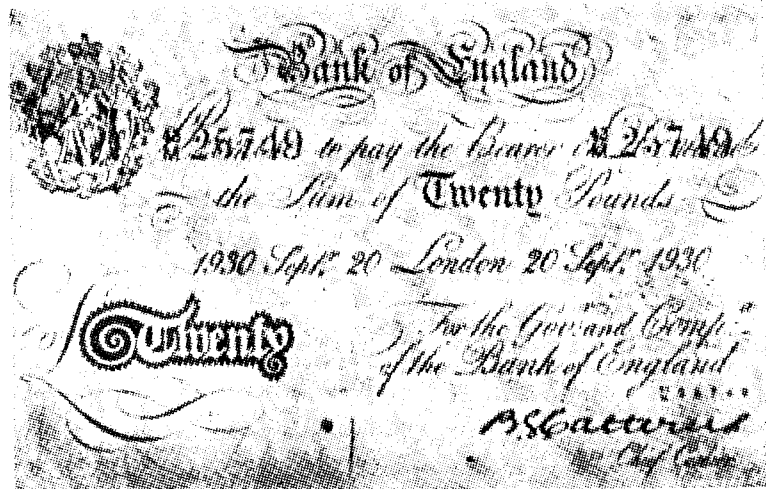 Bank of England
25749 to pay the Bearer 25749
the Sum of Twenty Pounds
1930 Septr 20 London 20 Septr 1930
For the Govr and Compa
Twenty
of the Bank of England
B G Catterns
Chief Cashier